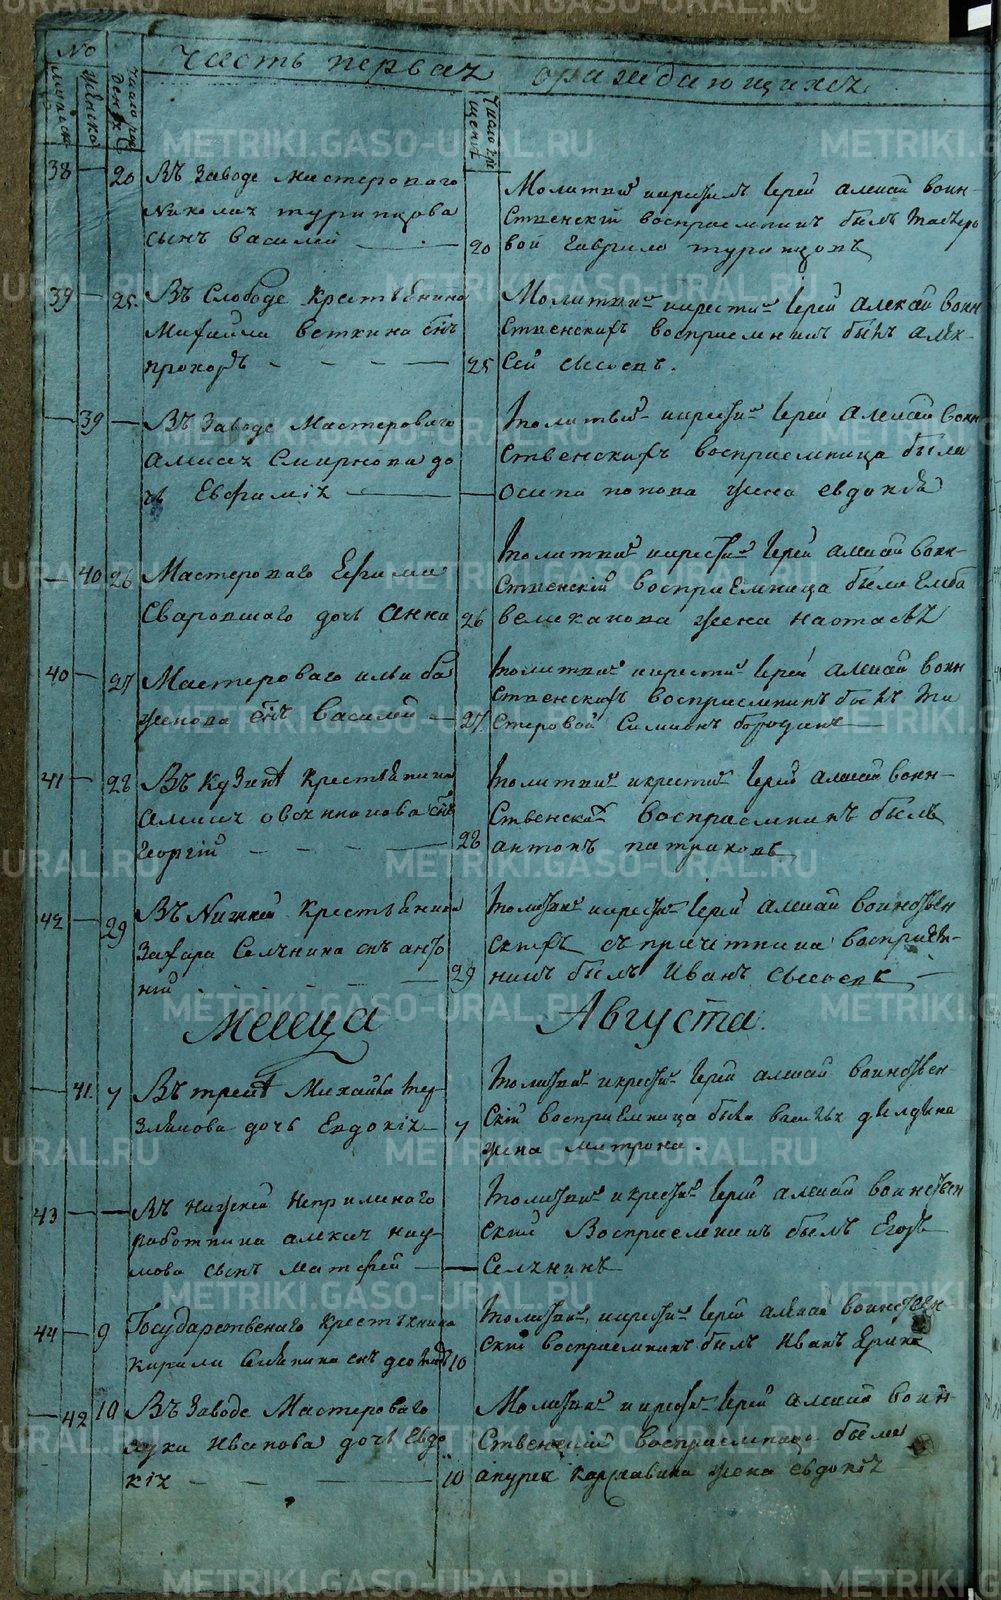 METRIKI.GASO-URAL.RU
Часть первая о раждающихся
№
мужска
женска
число рож
ден
число кре
щен
38 20 Въ Заводе мастероваго
Николая турипцова
сынъ Василей 20
Молитвил икрестилъ Иерей алексай воин-
ственскій восприемникъ былъ мастеро
вой Гаврило турипцовъ
39 25 Въ Слободе Крестьянина
Михаила веткина снъ
прохоръ 25
Молитвил икрестил Иерей алексай воин
ственскихъ восприемникъ былъ алек-
сей сысоевъ.
39 Въ Заводе Мастероваго
алексея Смирнова до
чь Евфимія
молитвил икрестил Иерей алексай воин
ственскихъ восприемница была
осипа попова жена евдокѣя
40 26 Мастероваго Ефима
Сваровшаго дочь анна 26
молитвил икрестил Иерей алексай воин-
ственскій восприемница была
великанова жена настасья
40 27 Мастероваго ильи ба
женова снъ Василей 27
молитвил икрестил Иерей алексай воин
ственскихъ восприемникъ былъ ма
стеровой Симионъ бородинъ
41 28 Въ Кузине Крестьянина
алексея овчинникова снъ
Георгій 28
молитвил икрестил Иерей алексай воин-
ственскій восприемникъ былъ
антонъ патраковъ
42 29 Въ Нижней Крестьянина
Захара Селянина снъ анто
ній 29
молитвил икрестил Иерей алексай воинствен
скихъ съ причетники восприем-
никъ былъ Иванъ сысоевъ
Месеца Августа.
41 7 Въ треке Михайла
дочь Евдокія 7
молитвил икрестил Иерей алексай воинствен-
скій восприемница была
жена матрона
43 Въ нижней Непремѣннаго
работника алексея нау-
мова сынъ матфей
молитвил икрестил Иерей алексай воинствен
скій Восприемникъ былъ Егоръ
Селянинъ
44 9 Государственнаго Крестьянина
кирила снъ 10
молитвил икрестил Иерей алексай воинствен
скій восприемникъ былъ Иванъ
42 10 Въ Заводе Мастероваго
луки Иванова дочь Евдо
кія 10
Молитвил икрестил Иерей алексай воин-
ственскій восприемница была
жена евдокія